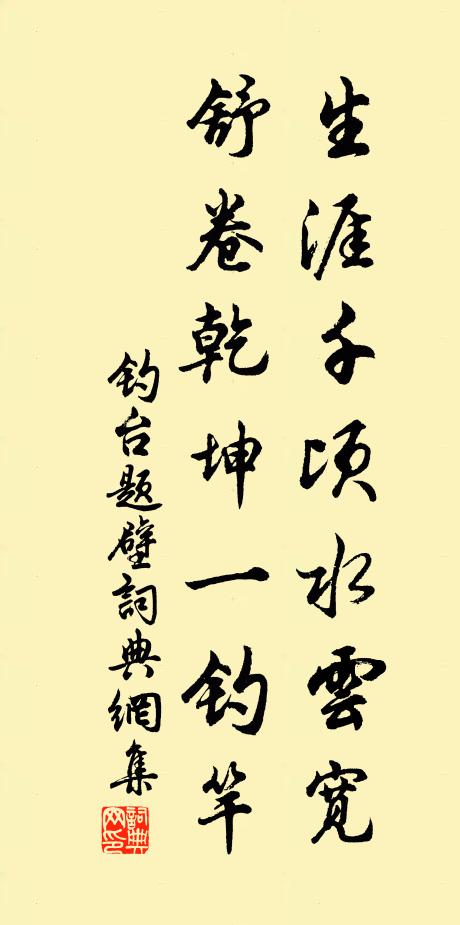 生涯千頃水雲寬
舒卷乾坤一钓竿
钓台题壁詞典網集
詞典网印